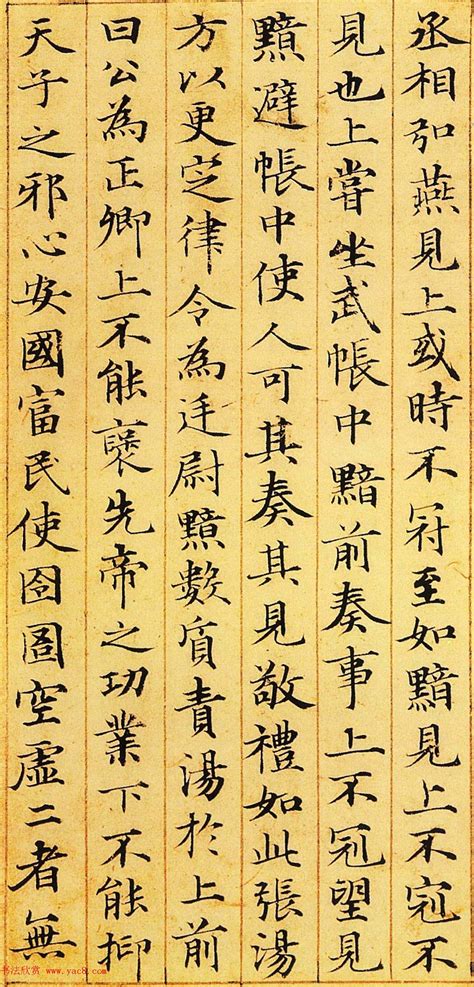 丞相弘燕見上或時不冠至如黯見上不冠不
見也上嘗坐武帳中黯前奏事上不冠望見
黯避帳中使人可其奏其見敬禮如此張湯
方以更定律令為廷尉黯數質責湯於上前
曰公為正卿上不能襃先帝之功業下不能抑
天子之邪心安國富民使囹圄空虛二者無
书法欣赏 www.yac8.com